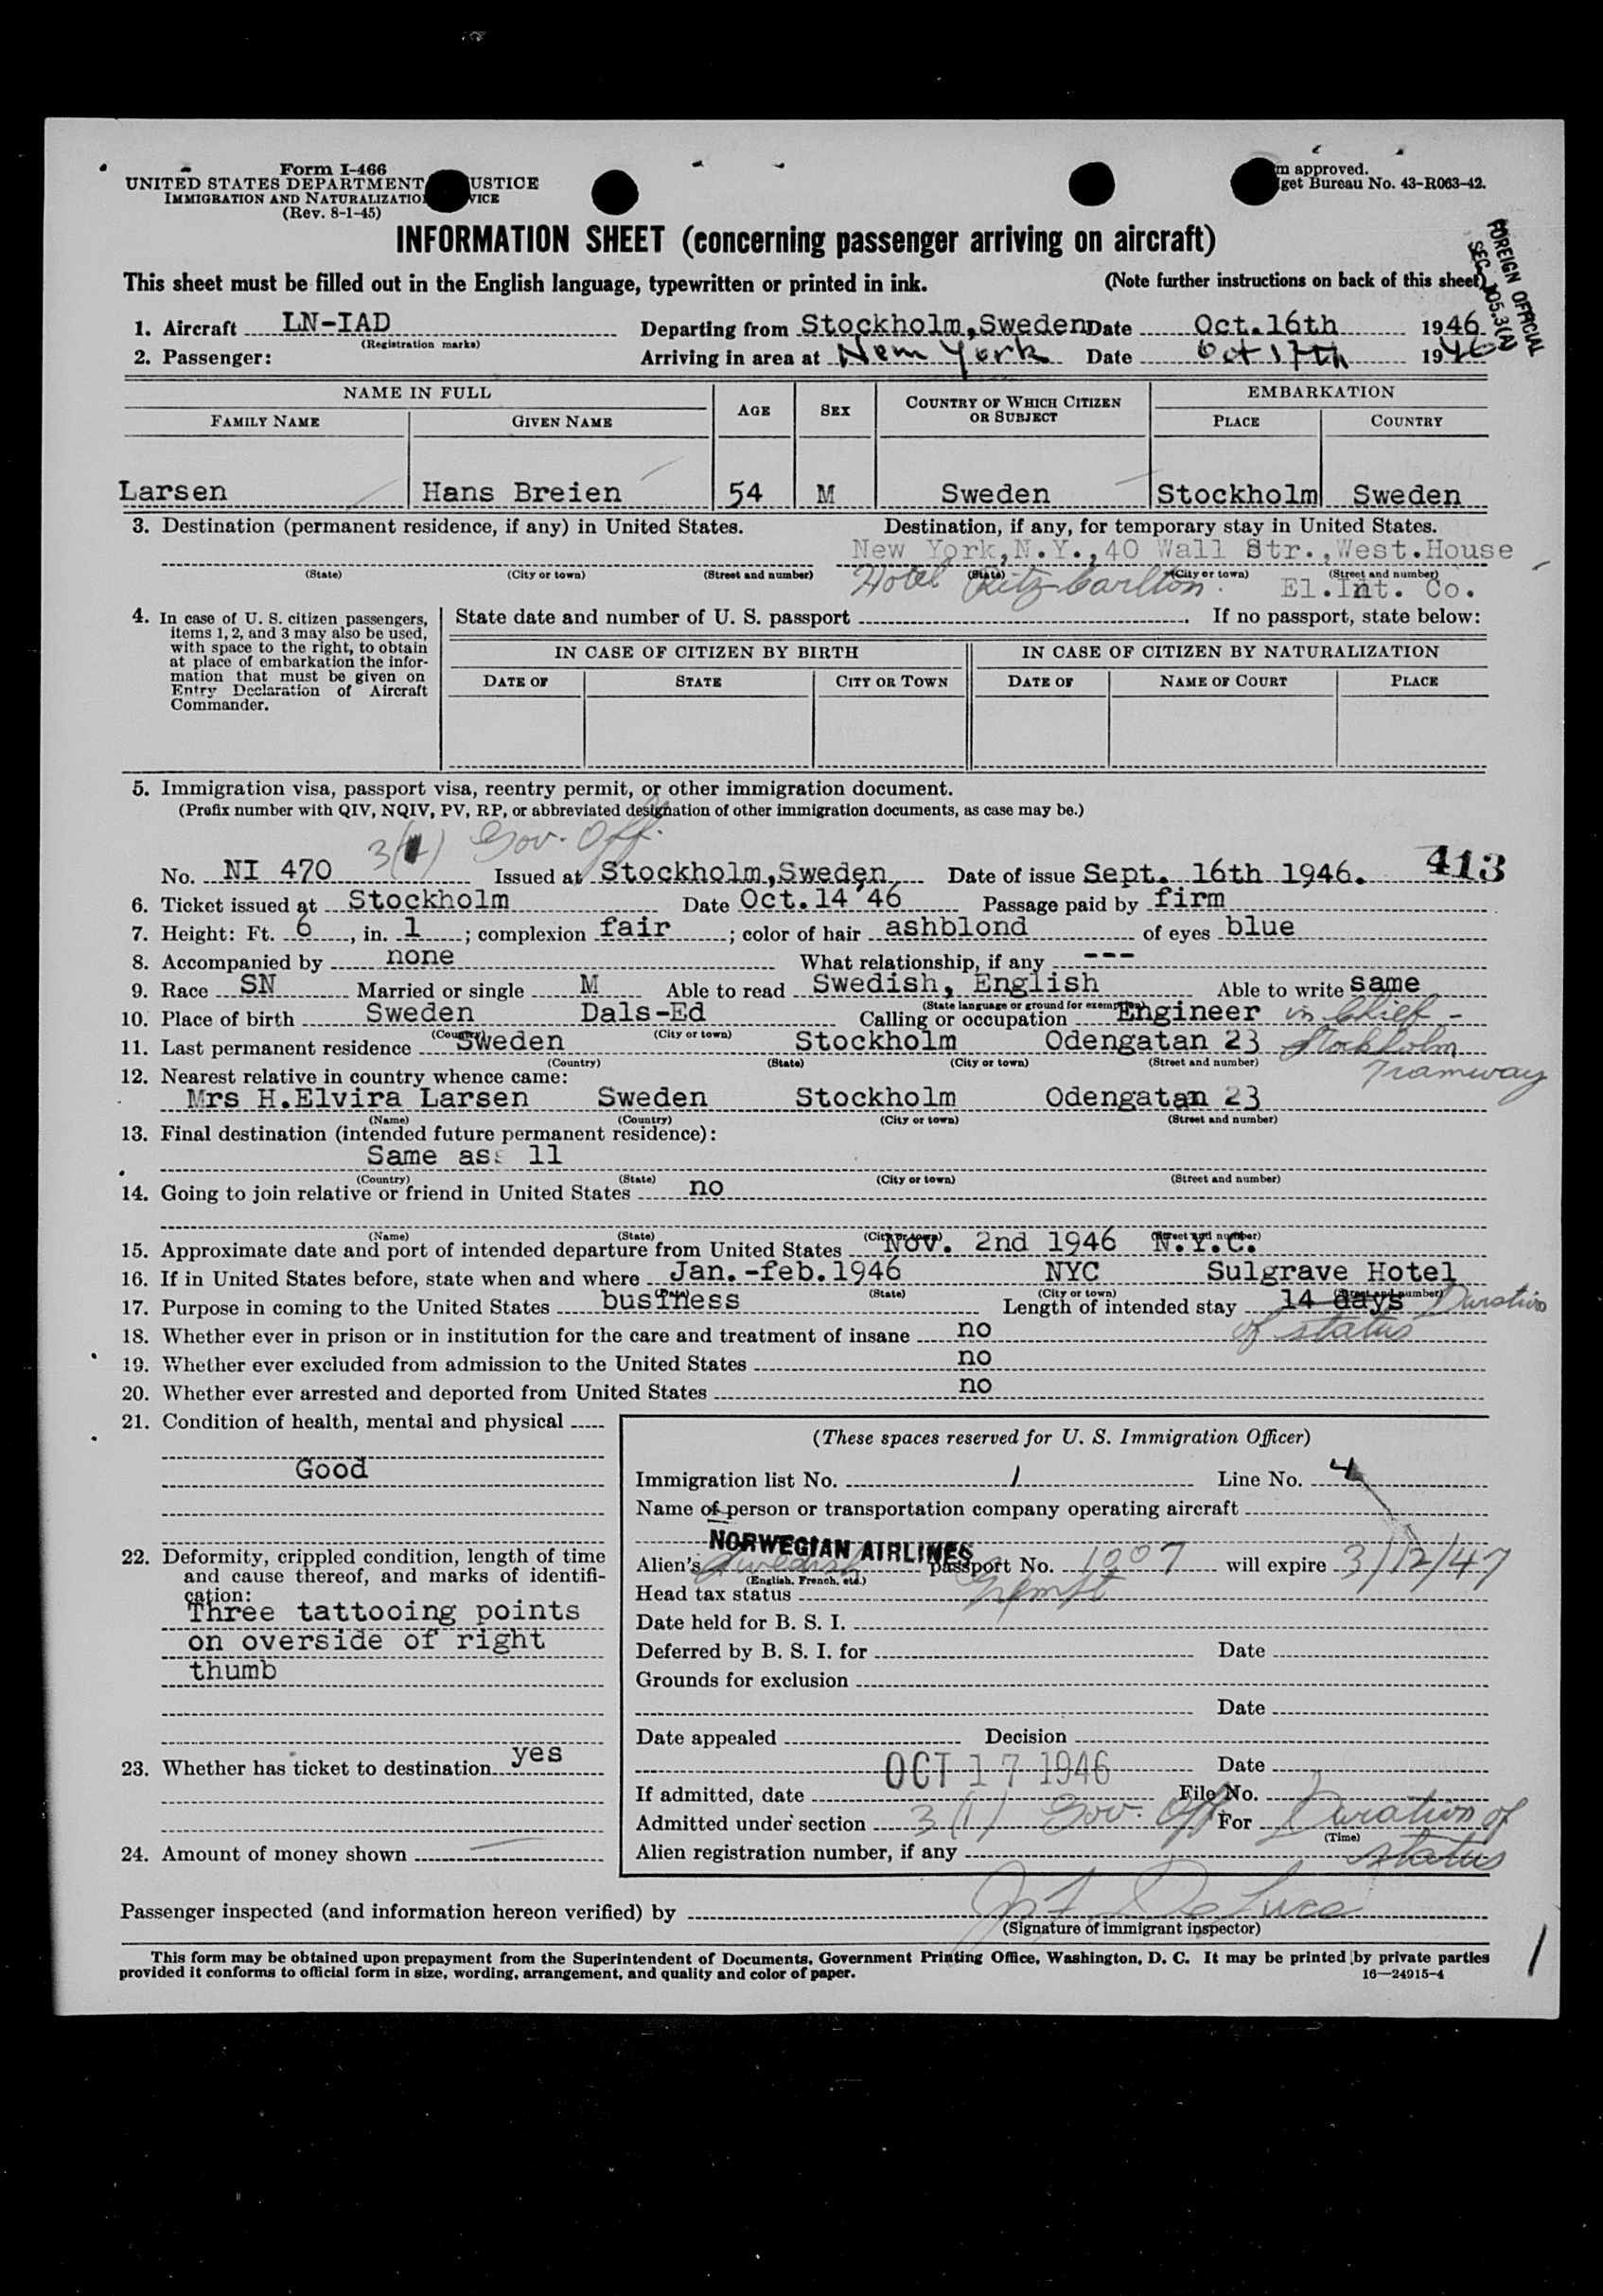 Form I-466
UNITED STATES DEPARTMENT USTICE
IMMIGRATION AND NATURALIZATIO VICE
(Rev. 8-1-45)
m approved.
get Bureau No. 43-R063-42.
INFORMATION SHEET (concerning passenger arriving on aircraft)
FOREIGN OFFICIAL
SEC. 105.3(A)
This sheet must be filled out in the English language, typewritten or printed in ink. (Note further instructions on back of this sheet)
1. Aircraft LN-IAD Departing from Stockholm,Sweden Date Oct.16th 1946
(Registration marks)
2. Passenger: Arriving in area at New York Date Oct 17th 1946
NAME IN FULL AGE SEX COUNTRY OF WHICH CITIZEN OR SUBJECT EMBARKATION
FAMILY NAME GIVEN NAME PLACE COUNTRY
Larsen Hans Breien 54 M Sweden Stockholm Sweden
3. Destination (permanent residence, if any) in United States. Destination, if any, for temporary stay in United States.
New York,N.Y.,40 Wall Str.,West.House
(State) (City or town) (Street and number) (State) (City or town) (Street and number)
Hotel Ritz-Carlton. El.Int. Co.
4. In case of U. S. citizen passengers, items 1, 2, and 3 may also be used, with space to the right, to obtain at place of embarkation the information that must be given on Entry Declaration of Aircraft Commander.
State date and number of U. S. passport . If no passport, state below:
IN CASE OF CITIZEN BY BIRTH IN CASE OF CITIZEN BY NATURALIZATION
DATE OF STATE CITY OR TOWN DATE OF NAME OF COURT PLACE
5. Immigration visa, passport visa, reentry permit, or other immigration document.
(Prefix number with QIV, NQIV, PV, RP, or abbreviated designation of other immigration documents, as case may be.)
3(1) Gov. Off.
413
No. NI 470 Issued at Stockholm,Sweden Date of issue Sept. 16th 1946.
6. Ticket issued at Stockholm Date Oct.14 '46 Passage paid by firm
7. Height: Ft. 6, in. 1; complexion fair; color of hair ashblond of eyes blue
8. Accompanied by none What relationship, if any ---
9. Race SN Married or single M Able to read Swedish, English Able to write same
(State language or ground for exemption)
10. Place of birth Sweden Dals-Ed Calling or occupation Engineer in Chief -
(Country) (City or town)
11. Last permanent residence Sweden Stockholm Odengatan 23 Stockholm
(Country) (State) (City or town) (Street and number) Tramway
12. Nearest relative in country whence came:
Mrs H.Elvira Larsen Sweden Stockholm Odengatan 23
(Name) (Country) (City or town) (Street and number)
13. Final destination (intended future permanent residence):
Same as: 11
(Country) (State) (City or town) (Street and number)
14. Going to join relative or friend in United States no
(Name) (State) (City or town) (Street and number)
15. Approximate date and port of intended departure from United States Nov. 2nd 1946 N.Y.C.
16. If in United States before, state when and where Jan.-feb.1946 NYC Sulgrave Hotel
(State) (City or town) (Street and number)
17. Purpose in coming to the United States business Length of intended stay 14 days Duration
of status
18. Whether ever in prison or in institution for the care and treatment of insane no
19. Whether ever excluded from admission to the United States no
20. Whether ever arrested and deported from United States no
21. Condition of health, mental and physical
Good
22. Deformity, crippled condition, length of time and cause thereof, and marks of identification:
Three tattooing points
on overside of right
thumb
23. Whether has ticket to destination yes
24. Amount of money shown —
(These spaces reserved for U. S. Immigration Officer)
Immigration list No. 1 Line No. 4
Name of person or transportation company operating aircraft
NORWEGIAN AIRLINES
Alien's Swedish passport No. 1007 will expire 3/12/47
(English, French, etc.)
Head tax status Exempt
Date held for B. S. I.
Deferred by B. S. I. for Date
Grounds for exclusion
Date
Date appealed Decision
OCT 17 1946 Date
If admitted, date File No.
Admitted under section 3(1) Gov. Off For Duration of
(Time)
Alien registration number, if any status
Passenger inspected (and information hereon verified) by
(Signature of immigrant inspector)
This form may be obtained upon prepayment from the Superintendent of Documents, Government Printing Office, Washington, D. C. It may be printed by private parties
provided it conforms to official form in size, wording, arrangement, and quality and color of paper. 16—24915-4
1